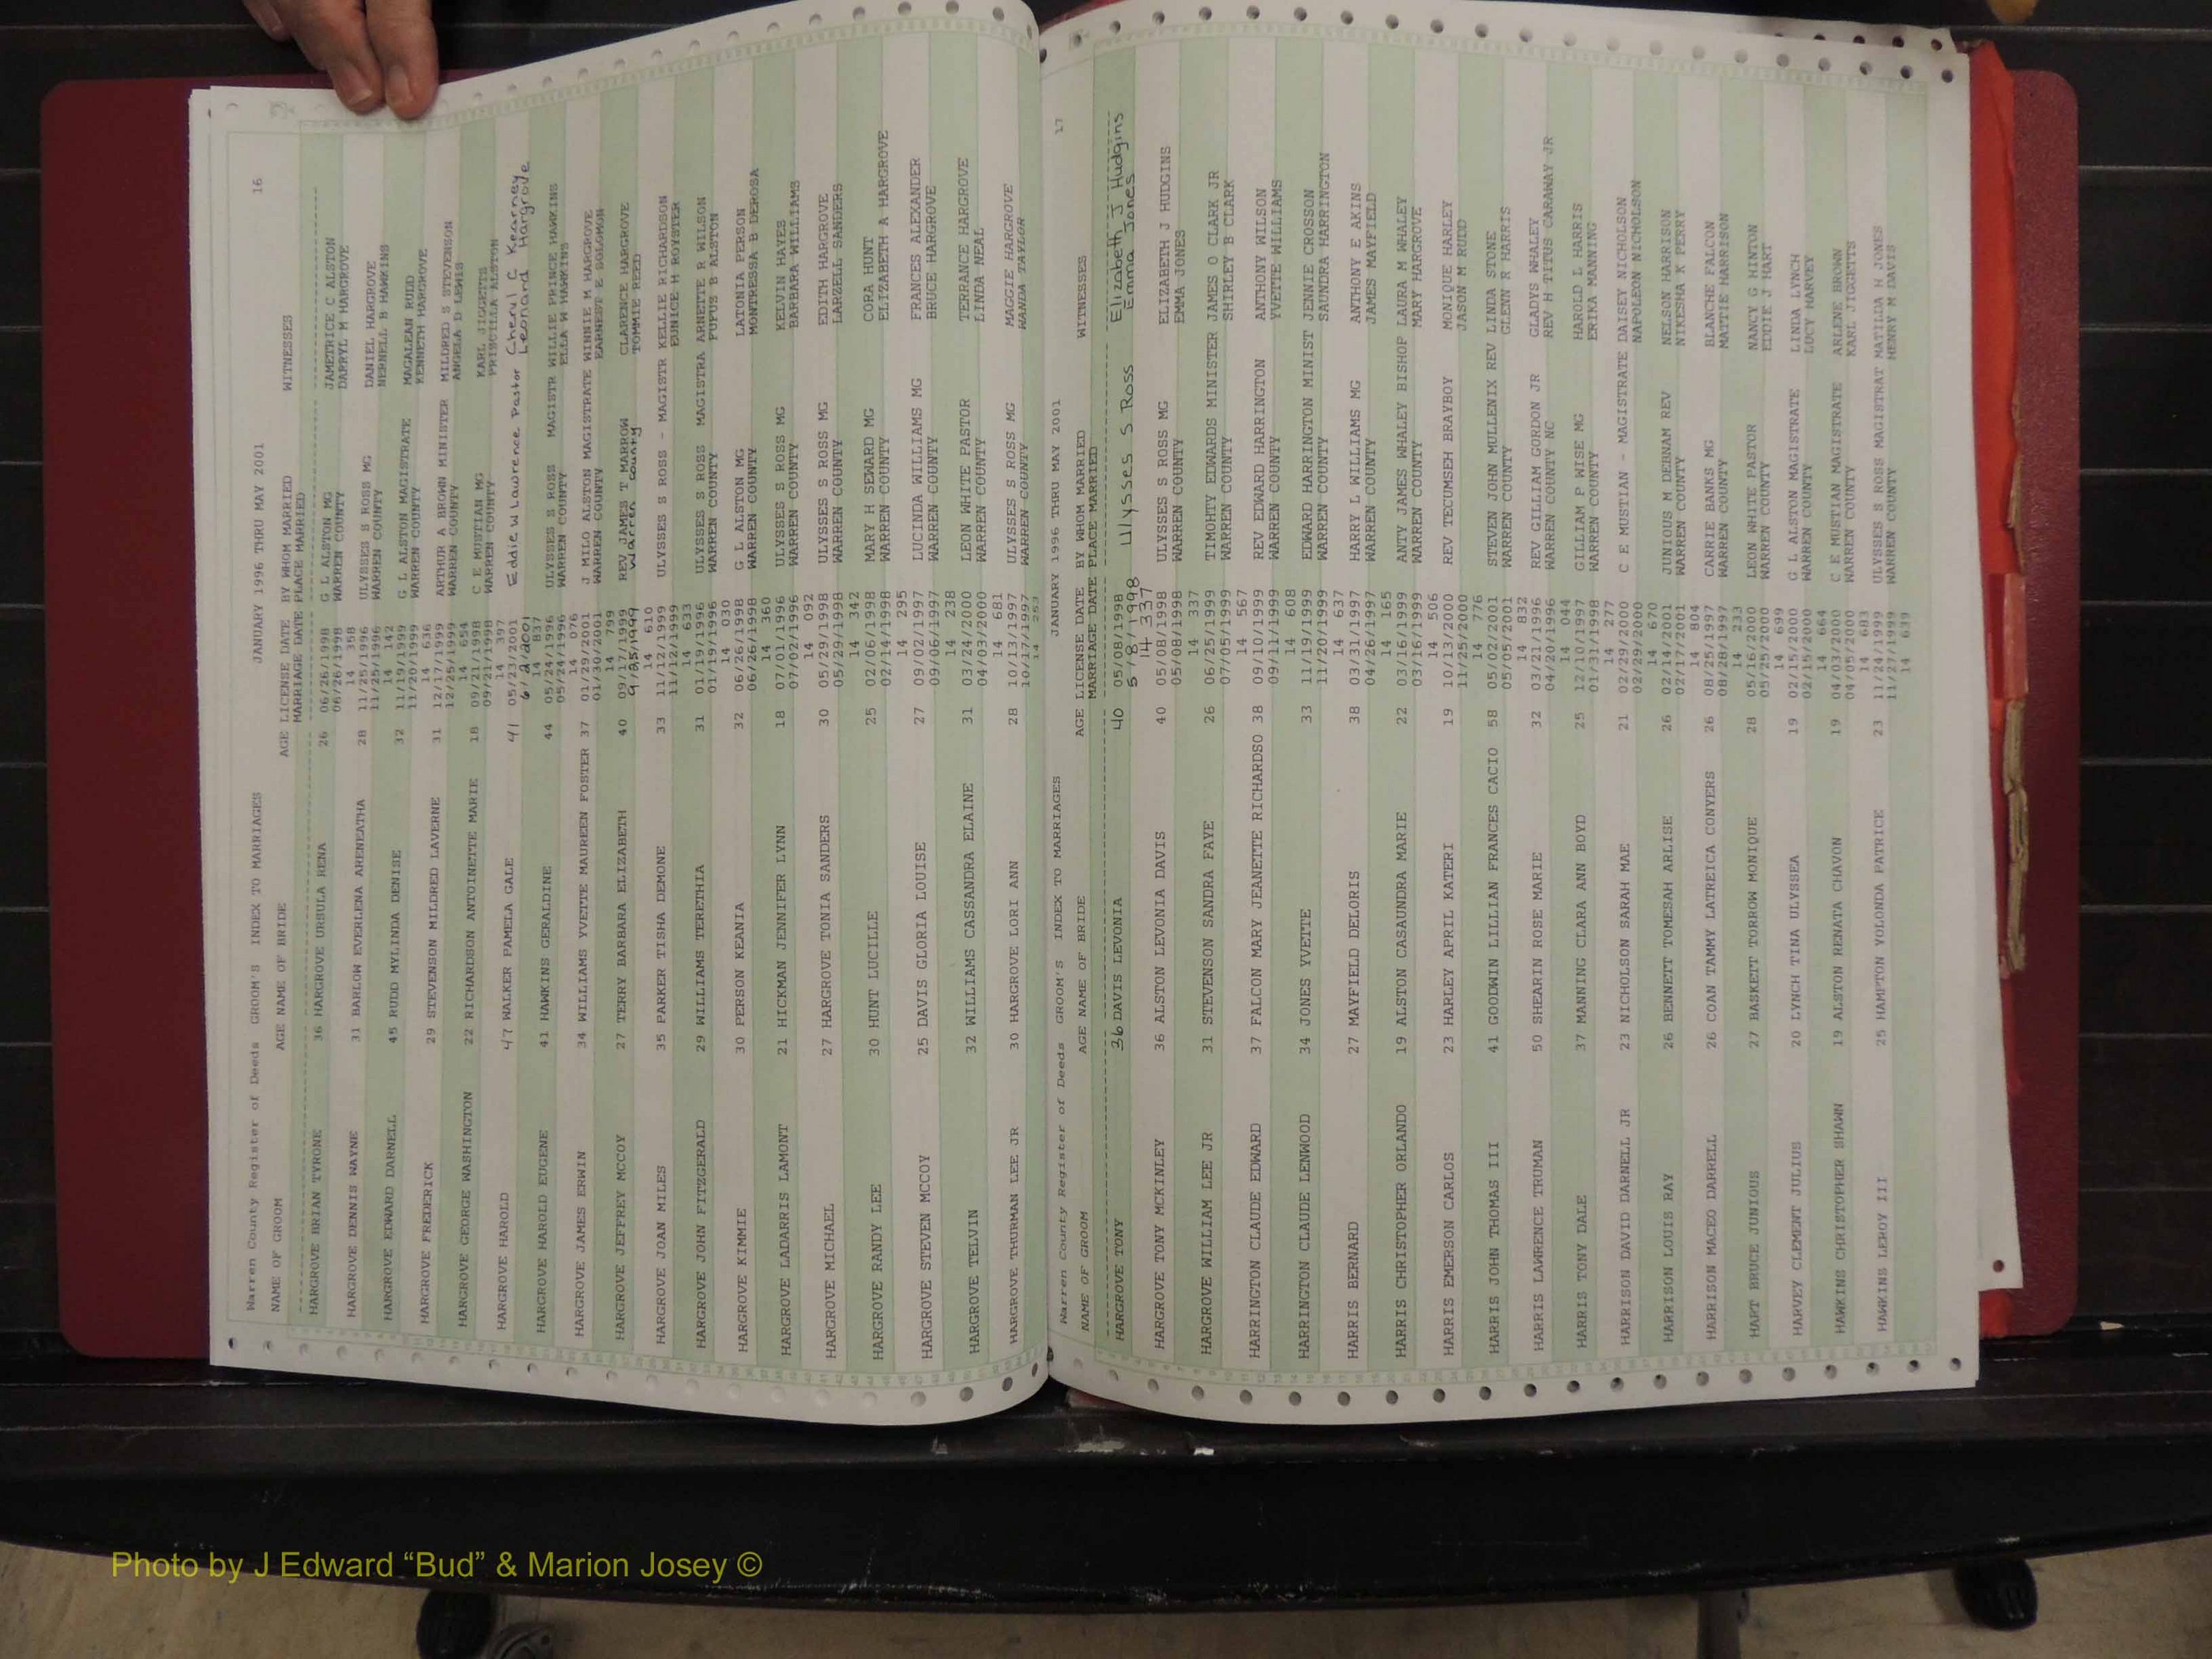 Warren County Register of Deeds GROOM'S INDEX TO MARRIAGES JANUARY 1996 THRU MAY 2001 16
NAME OF GROOM AGE NAME OF BRIDE AGE LICENSE DATE BY WHOM MARRIED WITNESSES
MARRIAGE DATE PLACE MARRIED
HARGROVE BRIAN TYRONE 36 HARGROVE URSULA RENA 26 06/26/1998 G L ALSTON MG JAMETRICE C ALSTON
06/26/1998 WARREN COUNTY DARRYL M HARGROVE
14 358
HARGROVE DENNIS WAYNE 31 BARLOW EVERLENA ARENEATHA 28 11/25/1996 ULYSSES S ROSS MG DANIEL HARGROVE
11/25/1996 WARREN COUNTY NERNELL B HAWKINS
14 142
HARGROVE EDWARD DARNELL 45 RUDD MYLINDA DENISE 32 11/19/1999 G L ALSTON MAGISTRATE MAGALEAN RUDD
11/20/1999 WARREN COUNTY KENNETH HARGROVE
14 636
HARGROVE FREDERICK 29 STEVENSON MILDRED LAVERNE 31 12/17/1999 ARTHUR A BROWN MINISTER MILDRED S STEVENSON
12/25/1999 WARREN COUNTY ANGELA D LEWIS
14 654
HARGROVE GEORGE WASHINGTON 22 RICHARDSON ANTOINETTE MARIE 18 09/21/1998 C E MUSTIAN MG KARL JIGGETTS
09/21/1998 WARREN COUNTY PRISCILLA ALSTON
14 397
HARGROVE HAROLD 47 WALKER PAMELA GALE 41 05/23/2001 Eddie W Lawrence Pastor Cheryl C Kearney
6/2/2001 Leonard Hargrove
14 837
HARGROVE HAROLD EUGENE 41 HAWKINS GERALDINE 44 05/24/1996 ULYSSES S ROSS MAGISTR WILLIE PRINCE HAWKINS
05/24/1996 WARREN COUNTY ELLA W HAWKINS
14 076
HARGROVE JAMES ERWIN 34 WILLIAMS YVETTE MAUREEN FOSTER 37 01/29/2001 J MILO ALSTON MAGISTRATE WINNIE M HARGROVE
01/30/2001 WARREN COUNTY EARNEST E SOLOMON
14 799
HARGROVE JEFFREY MCCOY 27 TERRY BARBARA ELIZABETH 40 09/17/1999 REV JAMES T MARROW CLARENCE HARGROVE
9/25/1999 Warren County TOMMIE REED
14 610
HARGROVE JOAN MILES 35 PARKER TISHA DEMONE 33 11/12/1999 ULYSSES S ROSS - MAGISTR KELLIE RICHARDSON
11/12/1999 EUNICE H ROYSTER
14 633
HARGROVE JOHN FITZGERALD 29 WILLIAMS TERETHIA 31 01/19/1996 ULYSSES S ROSS MAGISTRA ARNETTE R WILSON
01/19/1996 WARREN COUNTY FUFUS B ALSTON
14 030
HARGROVE KIMMIE 30 PERSON KEANIA 32 06/26/1998 G L ALSTON MG LATONIA PERSON
06/26/1998 WARREN COUNTY MONTRESSA B DEROSA
14 360
HARGROVE LADARRIS LAMONT 21 HICKMAN JENNIFER LYNN 18 07/01/1996 ULYSSES S ROSS MG KELVIN HAYES
07/02/1996 WARREN COUNTY BARBARA WILLIAMS
14 092
HARGROVE MICHAEL 27 HARGROVE TONIA SANDERS 30 05/29/1998 ULYSSES S ROSS MG EDITH HARGROVE
05/29/1998 WARREN COUNTY LARZELL SANDERS
14 342
HARGROVE RANDY LEE 30 HUNT LUCILLE 25 02/06/1998 MARY H SEWARD MG CORA HUNT
02/14/1998 WARREN COUNTY ELIZABETH A HARGROVE
14 295
HARGROVE STEVEN MCCOY 25 DAVIS GLORIA LOUISE 27 09/02/1997 LUCINDA WILLIAMS MG FRANCES ALEXANDER
09/06/1997 WARREN COUNTY BRUCE HARGROVE
14 238
HARGROVE TELVIN 32 WILLIAMS CASSANDRA ELAINE 31 03/24/2000 LEON WHITE PASTOR TERRANCE HARGROVE
04/03/2000 WARREN COUNTY LINDA NEAL
14 681
HARGROVE THURMAN LEE JR 30 HARGROVE LORI ANN 28 10/13/1997 ULYSSES S ROSS MG MAGGIE HARGROVE
10/17/1997 WARREN COUNTY WANDA TAYLOR
14 253
Warren County Register of Deeds GROOM'S INDEX TO MARRIAGES JANUARY 1996 THRU MAY 2001 17
NAME OF GROOM AGE NAME OF BRIDE AGE LICENSE DATE BY WHOM MARRIED WITNESSES
MARRIAGE DATE PLACE MARRIED
HARGROVE TONY 36 DAVIS LEVONIA 40 05/08/1998 Ulysses S Ross Elizabeth J Hudgins
5/8/1998 Emma Jones
14 337
HARGROVE TONY MCKINLEY 36 ALSTON LEVONIA DAVIS 40 05/08/1998 ULYSSES S ROSS MG ELIZABETH J HUDGINS
05/08/1998 WARREN COUNTY EMMA JONES
14 337
HARGROVE WILLIAM LEE JR 31 STEVENSON SANDRA FAYE 26 06/25/1999 TIMOHTY EDWARDS MINISTER JAMES O CLARK JR
07/05/1999 WARREN COUNTY SHIRLEY B CLARK
14 567
HARRINGTON CLAUDE EDWARD 37 FALCON MARY JEANETTE RICHARDSO 38 09/10/1999 REV EDWARD HARRINGTON ANTHONY WILSON
09/11/1999 WARREN COUNTY YVETTE WILLIAMS
14 608
HARRINGTON CLAUDE LENWOOD 34 JONES YVETTE 33 11/19/1999 EDWARD HARRINGTON MINIST JENNIE CROSSON
11/20/1999 WARREN COUNTY SAUNDRA HARRINGTON
14 637
HARRIS BERNARD 27 MAYFIELD DELORIS 38 03/31/1997 HARRY L WILLIAMS MG ANTHONY E AKINS
04/26/1997 WARREN COUNTY JAMES MAYFIELD
14 165
HARRIS CHRISTOPHER ORLANDO 19 ALSTON CASAUNDRA MARIE 22 03/16/1999 ANTY JAMES WHALEY BISHOP LAURA M WHALEY
03/16/1999 WARREN COUNTY MARY HARGROVE
14 506
HARRIS EMERSON CARLOS 23 HARLEY APRIL KATERI 19 10/13/2000 REV TECUMSEH BRAYBOY MONIQUE HARLEY
11/25/2000 JASON M RUDD
14 776
HARRIS JOHN THOMAS III 41 GOODWIN LILLIAN FRANCES CACIO 58 05/02/2001 STEVEN JOHN MULLENIX REV LINDA STONE
05/05/2001 WARREN COUNTY GLENN R HARRIS
14 832
HARRIS LAWRENCE TRUMAN 50 SHEARIN ROSE MARIE 32 03/21/1996 REV GILLIAM GORDON JR GLADYS WHALEY
04/20/1996 WARREN COUNTY NC REV H TITUS CARAWAY JR
14 044
HARRIS TONY DALE 37 MANNING CLARA ANN BOYD 25 12/10/1997 GILLIAM P WISE MG HAROLD L HARRIS
01/31/1998 WARREN COUNTY ERIKA MANNING
14 277
HARRISON DAVID DARNELL JR 23 NICHOLSON SARAH MAE 21 02/29/2000 C E MUSTIAN - MAGISTRATE DAISEY NICHOLSON
02/29/2000 NAPOLEON NICHOLSON
14 670
HARRISON LOUIS RAY 26 BENNETT TOMESAH ARLISE 26 02/14/2001 JUNIOUS M DEBNAM REV NELSON HARRISON
02/17/2001 WARREN COUNTY NIKESHA K PERRY
14 804
HARRISON MACEO DARRELL 26 COAN TAMMY LATREICA CONYERS 26 08/25/1997 CARRIE BANKS MG BLANCHE FALCON
08/28/1997 WARREN COUNTY MATTIE HARRISON
14 233
HART BRUCE JUNIOUS 27 BASKETT TORROW MONIQUE 28 05/16/2000 LEON WHITE PASTOR NANCY G HINTON
05/25/2000 WARREN COUNTY EDDIE J HART
14 699
HARVEY CLEMENT JULIUS 20 LYNCH TINA ULYSSEA 19 02/15/2000 G L ALSTON MAGISTRATE LINDA LYNCH
02/15/2000 WARREN COUNTY LUCY HARVEY
14 664
HAWKINS CHRISTOPHER SHAWN 19 ALSTON RENATA CHAVON 19 04/03/2000 C E MUSTIAN MAGISTRATE ARLENE BROWN
04/05/2000 WARREN COUNTY KARL JIGGETTS
14 683
HAWKINS LEROY III 25 HAMPTON YOLONDA PATRICE 23 11/24/1999 ULYSSES S ROSS MAGISTRAT MATILDA H JONES
11/27/1999 WARREN COUNTY HENRY M DAVIS
14 639
Photo by J Edward “Bud” & Marion Josey ©